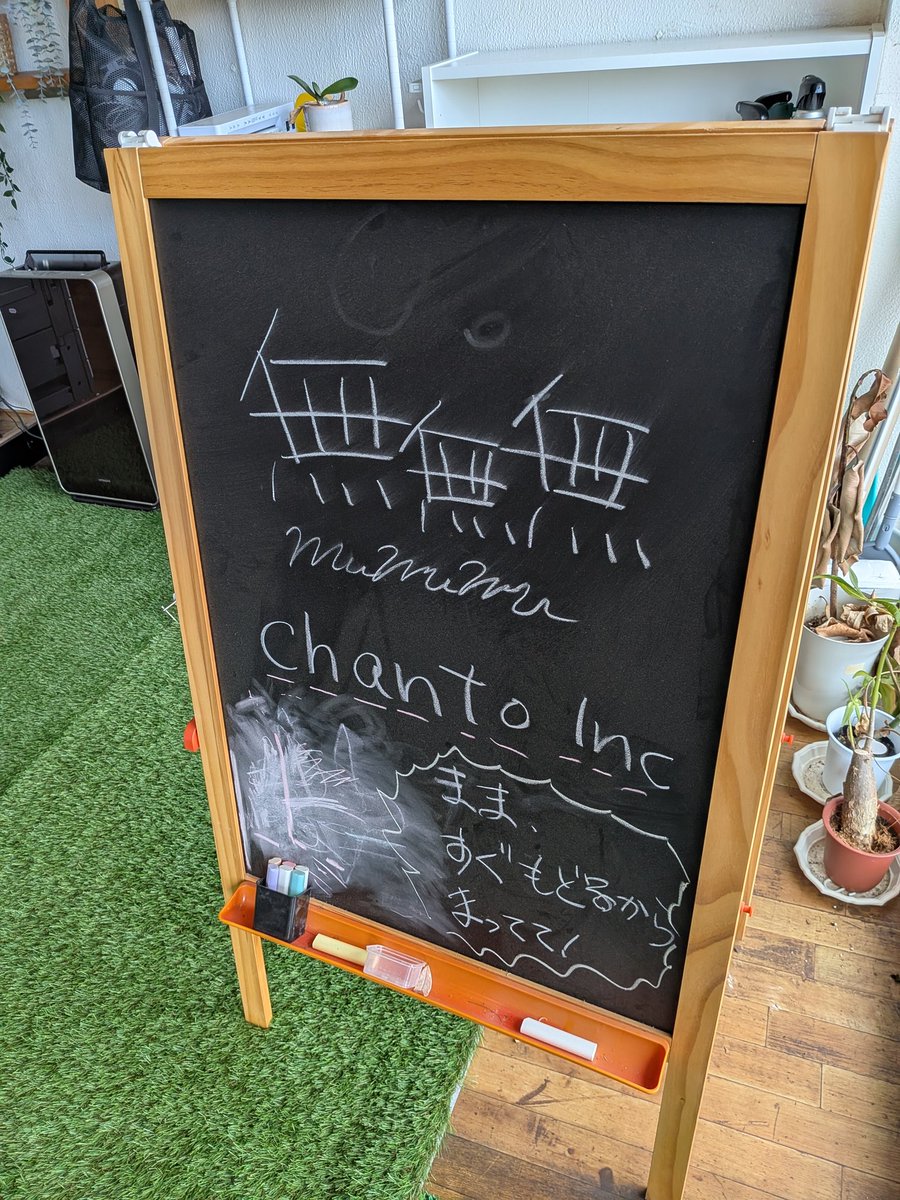 無無無
mumumu
chanto Inc
まま、
すぐもどるから
まってて!